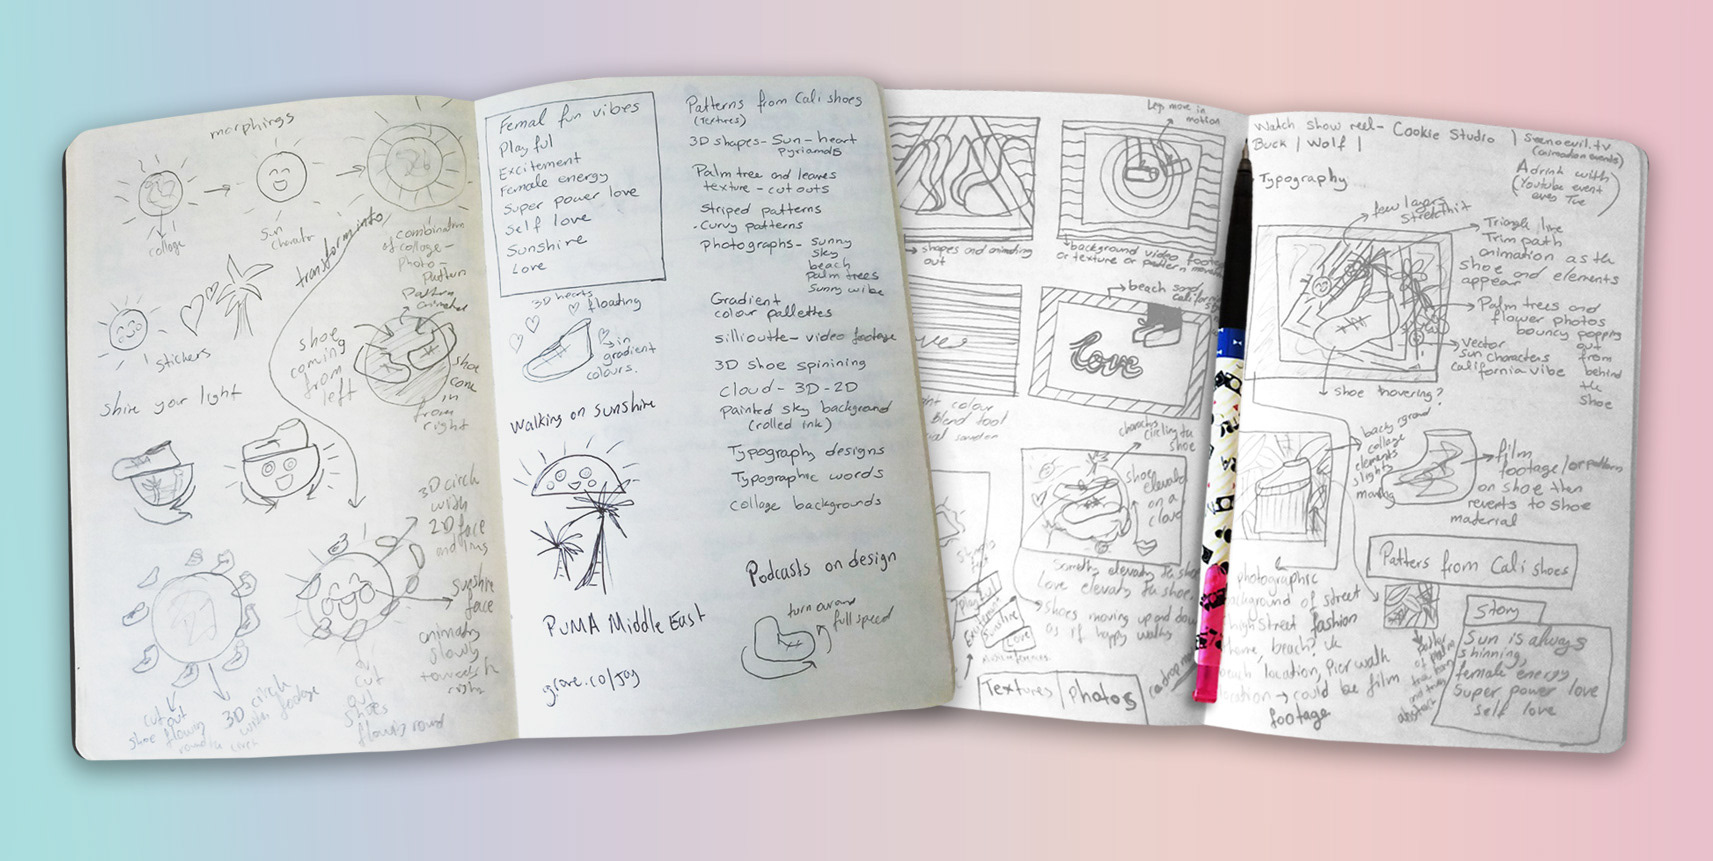 morphings
collage
Sun
Character
transforms into
combination
of collage -
Photo -
Pattern
Pattern
stickers
shoe
coming
from
left
shoe
come
in
from
right
Shine your light
3D circle
with
2D face
and
Sunshine
face
animating
slowly
towards
right
cut out
shoe flowing
round
3D circle
with footage
cut
out
shoes
flowing round
Femal fun vibes
Playful
Excitement
Female energy
Super power love
Self love
Sunshine
Love
3D hearts
floating
in
gradient
colours.
Walking on Sunshine
PUMA Middle East
Patterns from Cali shoes
(Textures)
3D shapes - Sun - heart
Pyriamds
Palm tree and leaves
texture - cut outs
Striped patterns
- Curvy patterns
Photographs - Sunny
Sky
beach
Palm trees
Sunny wibe
Gradient
colour pallettes
sillioutte - video footage
3D shoe spinining
Cloud - 3D - 2D
Painted sky background
(rolled ink)
Typography designs
Typographic words
collage backgrounds
Podcasts on design
turn around
full speed
Legs move in
motion
shapes and animating
out
background video footage
or texture or pattern
beach sand
Love
colour
Blend tool
circling the
shoe
shoe
elevated
on a
cloud
love elevates the shoe
shoes moving up and down
as if happy walking
Playful
Excitement
Sunshine
Love
Textures | Photos
Watch show reel - Cookie Studio | Seenoevil.tv
Buck | Wolf |
(animation events)
A drink with
(Youtube event
eves Tue)
Typography
few layers
Triangle/line
Trim path
animation as the
shoe and elements
appear
Palm trees and
flower photos
bouncy popping
out
from
behind
the
shoe
Vector
Sun characters
California vibe
shoe hovering?
background
collage
elements
slightly
moving
film
footage/or pattern
on shoe then
reverts to shoe
material
photographic
background of street
high street fashion
beach? uk
location, Pier walk
location → could be film
footage
Patters from Cali shoes
Story
Sun is always
shinning,
female energy
Super power love
Self love